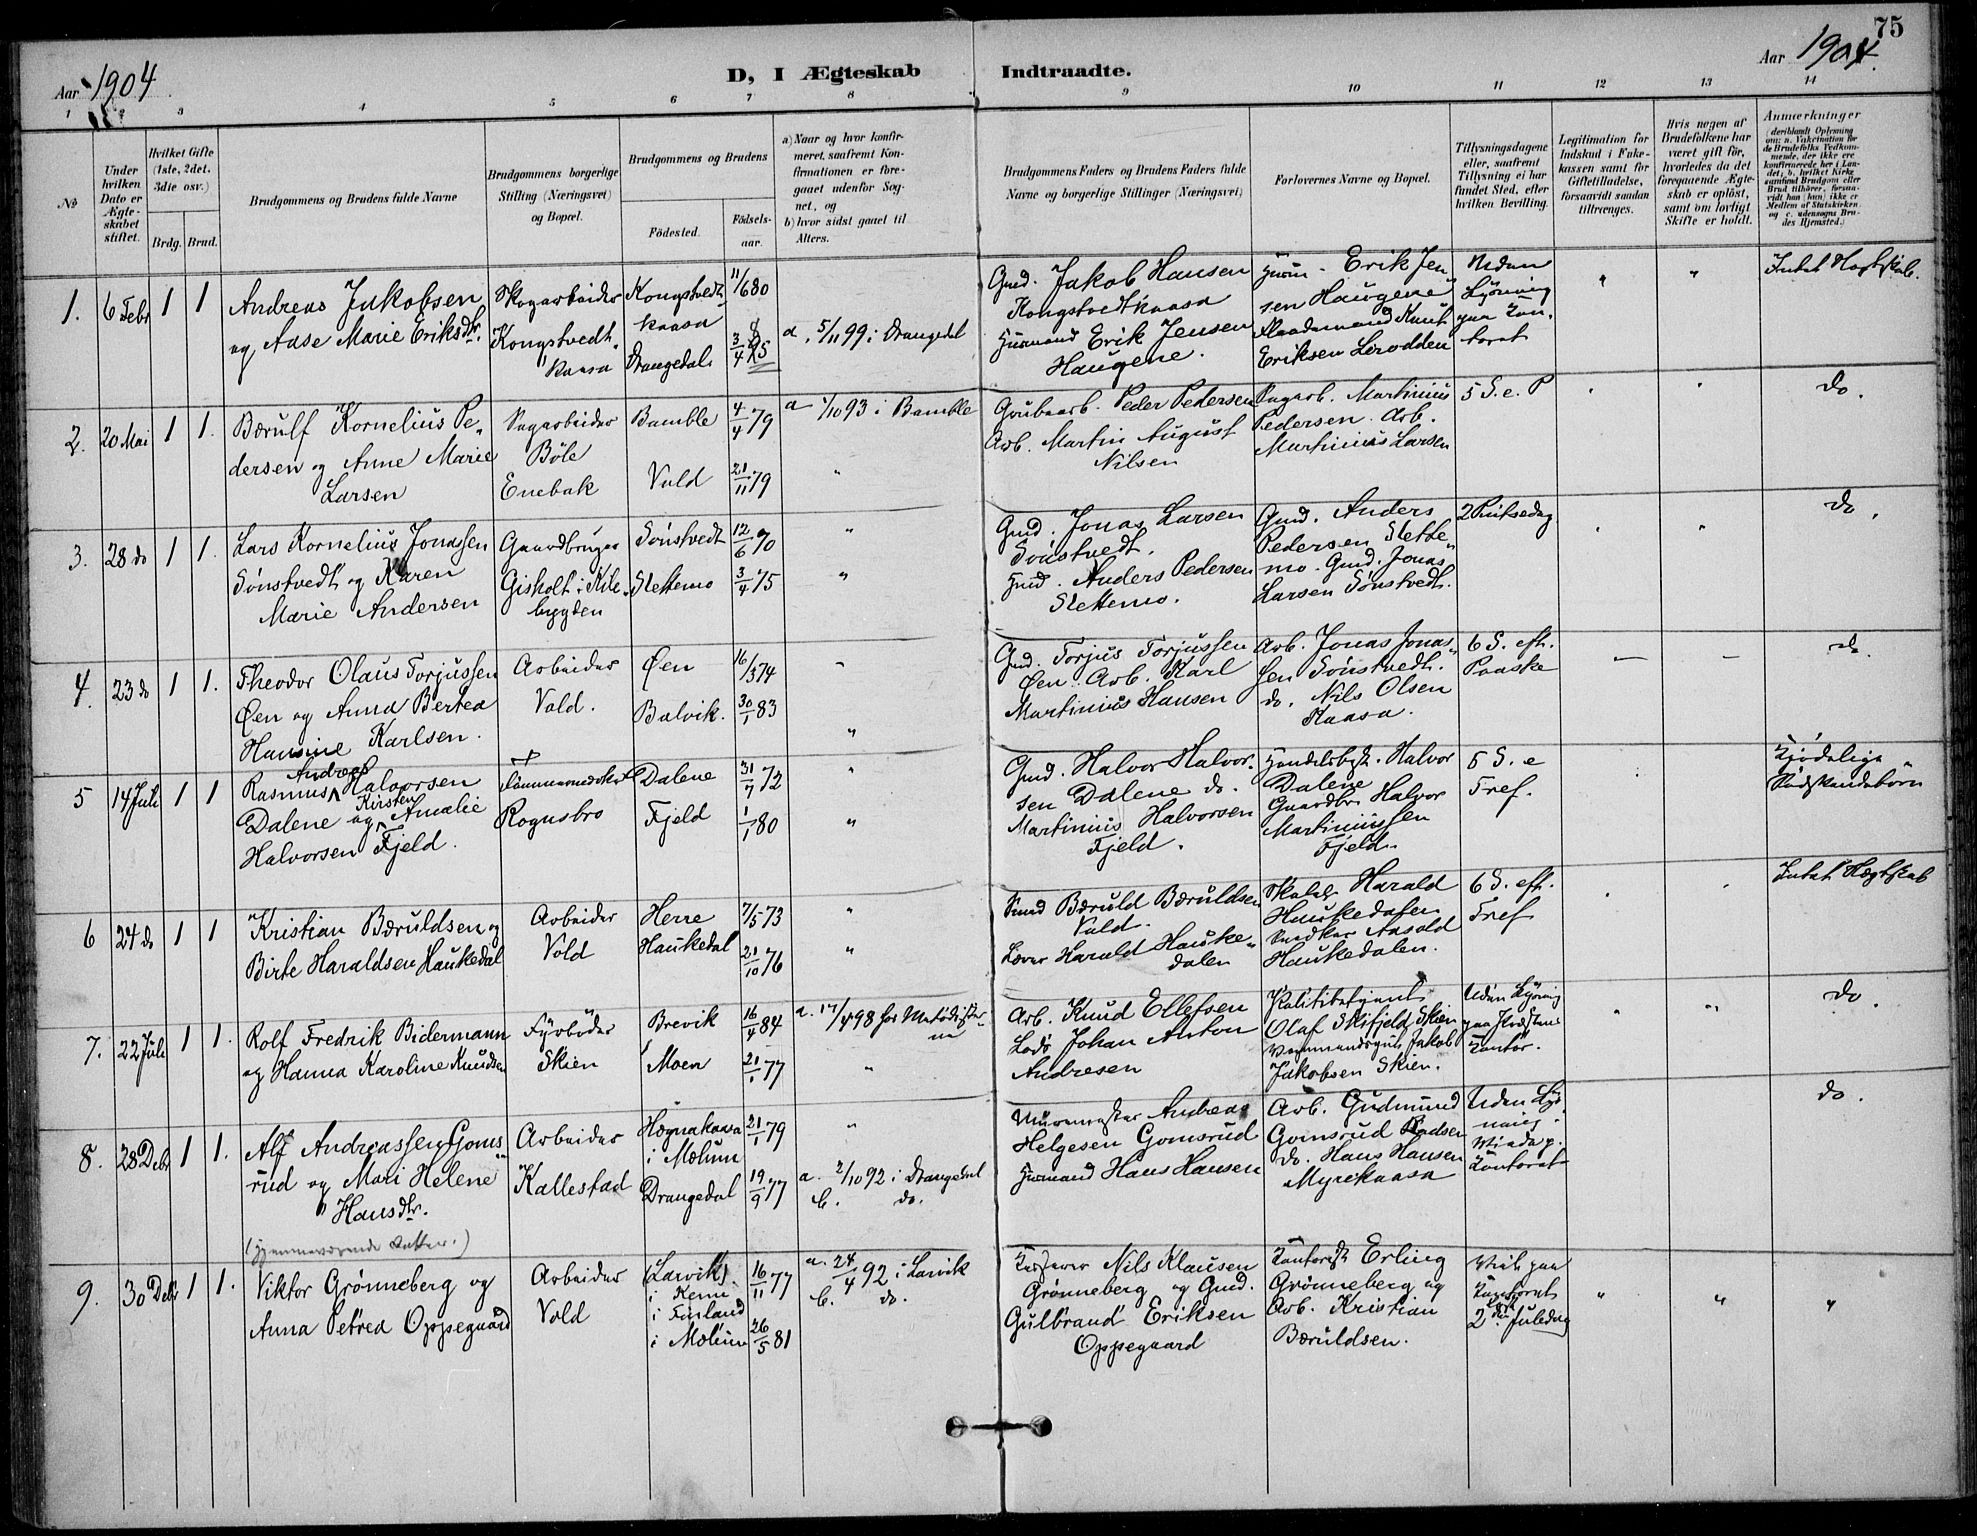 75
Aar 1904
D, I Ægteskab Indtraadte.
Aar 1904.
1 3 4 5 6 7 8 9 10 11 12 13 14
No
Under hvilken Dato er Ægteskabet stiftet.
Hvilket Gifte (1ste, 2det, 3die osv.)
Brdg. Brud.
Brudgommens og Brudens fulde Navne
Brudgommens borgerlige Stilling (Næringsvei) og Bopæl.
Brudgommens og Brudens
Födested.
Födsels-aar.
a) Naar og hvor konfir-
meret, saafremt Kon-
firmationen er fore-
gaaet udenfor Sog-
net, og
b) hvor sidst gaaet til
Alters.
Brudgommens Faders og Brudens Faders fulde
Navne og borgerlige Stillinger (Næringsvei)
Forlovernes Navne og Bopæl.
Tillysningsdagene
eller, saafremt
Tillysning ei har
fundet Sted, efter
hvilken Bevilling.
Legitimation for
Indskud i Enke-
kassen samt for
Giftetilladelse,
forsaavidt saadan
tiltrænges.
Hvis nogen af
Brudefolkene har
været gift för,
hvorledes da det
foregaaende Ægte-
skab er oplöst,
samt om lovligt
Skifte er holdt.
Anmærkninger
(deriblandt Oplysning
om: a. Vakcination for
de Brudefolks Vedkom-
mende, der ikke ere
konfirmerede her i Lan-
det; b. hvilket Kirke-
samfund Brudgom eller
Brud tilhörer, forsaa-
vidt han (hun) ikke er
Medlem af Statskirken,
og c. udensogns Bru-
des Hjemsted.)
1. 6 Febr 1 1
Andreas Jakobsen
og Aase Marie Eriksdtr.
Skogarbeider
Kongstvedt-
kaasa
Kongstvedt-
kaasa
Drangedal.
11/6 80
3/4 85
a. 5/11 99 i Drangedal
Gmd. Jakob Hansen
Kongstvedtkaasa
Husmand Erik Jensen
Haugene.
Husm. Erik Jen
sen Haugene
Pladsmand Knut
Eriksen Lerodden
Uden
Lysning
paa Kon-
toret
Intet Slægtskab.
2. 20 Mai 1 1.
Bærulf Kornelius Pe-
dersen og Anne Marie
Larsen
Sagarbeider
Böle
Enebak
Bamble
Vold
4/4 79
21/11 79
a 1/10 93 i Bamble
"
Grubearb. Peder Pedersen
Arb. Martin August
Nilsen
Sagarb. Martinius
Pedersen. Arb.
Martinius Larsen
5 S. e. P
do.
3. 28 do 1 1.
Lars Kornelius Jonassen
Sönstvedt og Karen
Marie Andersen
Gaardbruger
Gisholt i Kile-
bygden
Sönstvedt
Slettemo
12/6 70
3/4 75
"
"
Gmd. Jonas Larsen
Sönstvedt.
Gmd. Anders Pedersen
Slettemo.
Gmd. Anders
Pedersen Slette-
mo. Gmd. Jonas
Larsen Sönstvedt.
2 Pintsedag
do.
4. 23 do 1 1.
Theodor Olaus Torjussen
Øen og Anna Bertea
Hansine Karlsen.
Arbeider
Vold.
Øen
Balvik.
16/3 74
30/1 83
"
"
Gmd. Torjus Torjussen
Øen. Arb. Karl
Martinius Hansen
Arb. Jonas Jonas-
sen Sönstvedt.
do. Nils Olsen
Kaasa.
6 S. eft.
Paaske
do.
5 14 Juli 1 1
Rasmus Andreas Halvorsen
Dalene og Kirsten Amalie
Halvorsen Fjeld.
Tömmermerker
Rognsbro
Dalene
Fjeld
31/7 72
1/1 80
"
"
Gmd. Halvor Halvor-
sen Dalene do.
Martinius Halvorsen
Fjeld.
Handelsbest. Halvor
Dalene
Gaardbr. Halvor
Martiniussen
Fjeld.
5 S. e
Tref.
Kjödelige
Södskendebörn
6 24 do 1 1
Kristian Bæruldsen og
Birte Haraldsen Haukedal
Arbeider
Vold
Herre
Haukedal
7/5 73
21/10 76
"
"
Smed Bæruld Bæruldsen
Vold.
Lærer Harald Hauke-
dalen
Harald
Haukedalen
Snedker Aasold
Haukedalen.
6 S. eft.
Tref
Intet Slægtskab
7. 22 Juli 1 1.
Rolf Fredrik Bidermann
og Hanna Karoline Knudsen
Fyrböder
Skien
Brevik
Moen
16/4 84
21/1 77
a. 17/4 98 for Metodister-
ne
"
Arb. Knud Ellefsen
Lods Johan Anton
Andresen
Politibetjent
Olaf Skifjeld, Skien
Jakob
Jakobsen Skien.
Uden Lysning
paa
Kontor.
do.
8. 28 Debr 1 1.
Alf Andreassen Goms-
rud og Mari Helene
Hansdtr.
(gjenneværende Datter.)
Arbeider
Kallestad
Høgnakaasa
i Mælum
Drangedal
21/1 79
19/9 77
"
a. 2/10 92 i Drangedal
b. do.
Murmester Andreas
Helgesen Gomsrud
Husmand Hans Hansen
Arb. Gudmund
Gomsrud
do. Hans Hansen
Myrekaasa
Uden Lys-
ning.
Viede p.
Kontoret
do.
9. 30 Debr 1 1.
Viktor Grönneberg og
Anna Petrea Oppegaard
Arbeider
Vold
(Larvik)
i Kemi
i Finland
i Mælum
16/11 77
26/5 81
a. 24/4 92 i Larvik
b. do.
Nils Klausen
Grönneberg og Gmd.
Gulbrand Eriksen
Oppegaard
Kontorist Erling
Grönneberg og
Arb. Kristian
Bæruldsen.
Viet paa
Kontoret
2den Juledag
"